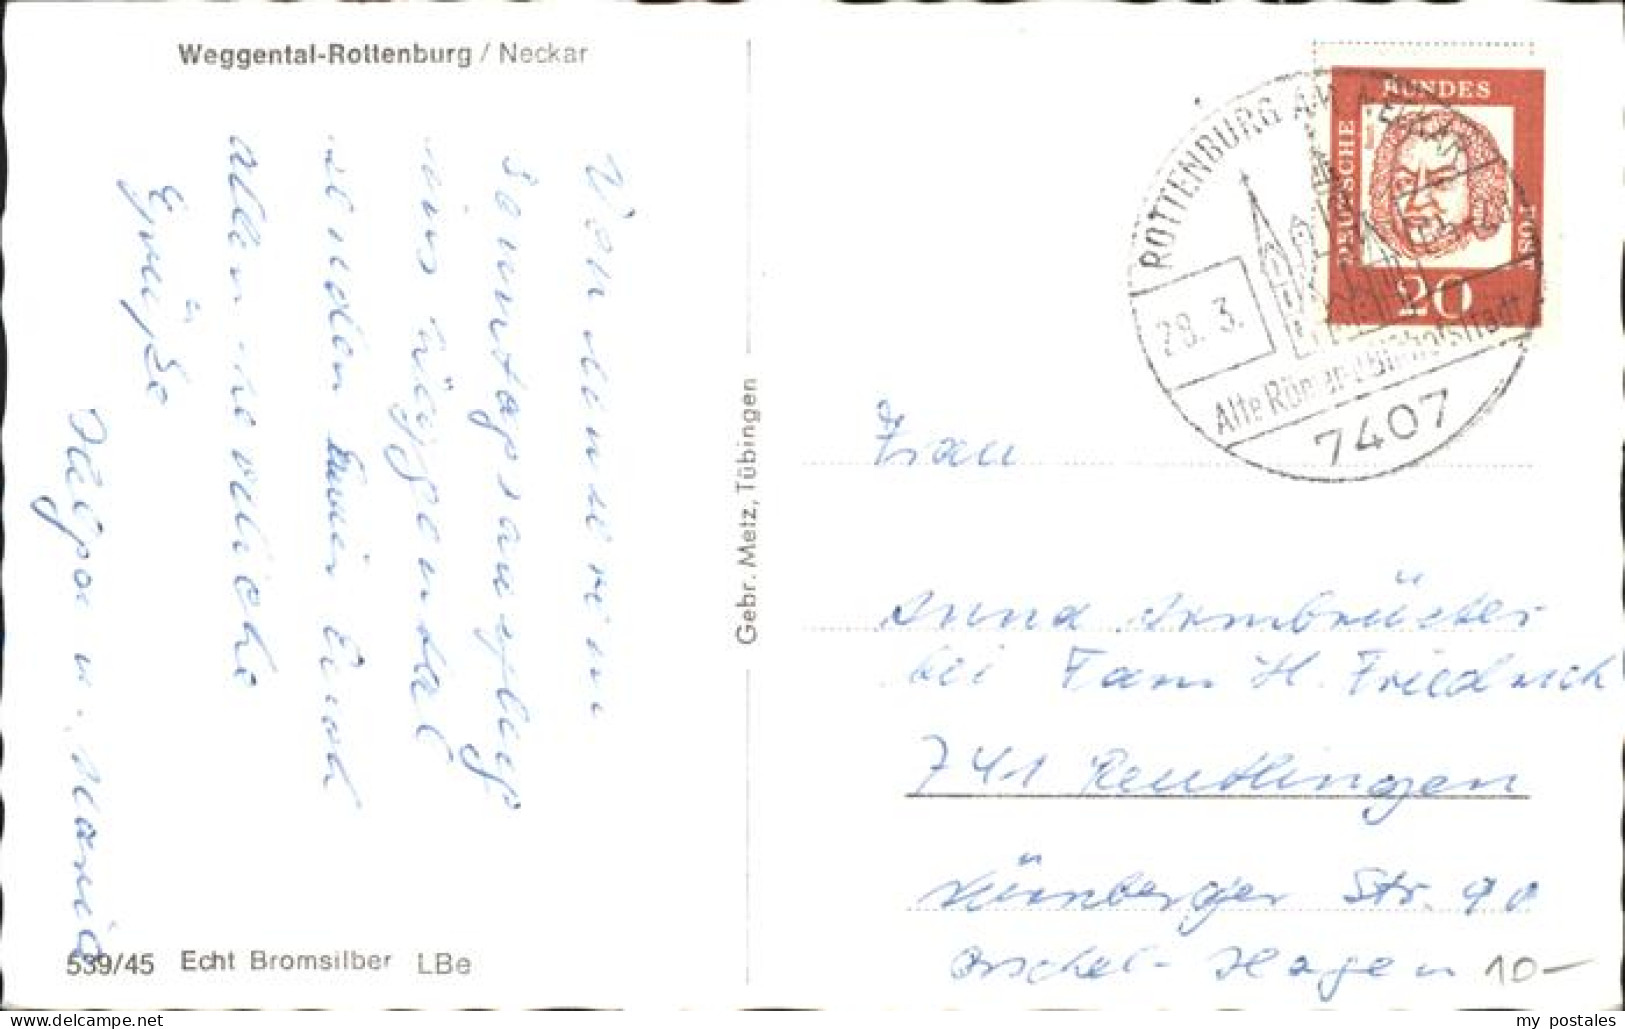 Weggental-Rottenburg / Neckar
Von unserem
Sonntagsausflug
ins Weggental
senden Euch
allen herzliche
Grüße
Helga u.
Gebr. Metz, Tübingen
539/45 Echt Bromsilber LBe
ROTTENBURG AM NECKAR
28. 3.
Alte Römer- u. Bischofsstadt
7407
DEUTSCHE BUNDESPOST
20
Frau
Anna Armbrüster
bei Fam. H. Friedrich
741 Reutlingen
Nürnberger Str. 90
Orschel-Hagen
10-
my_postales